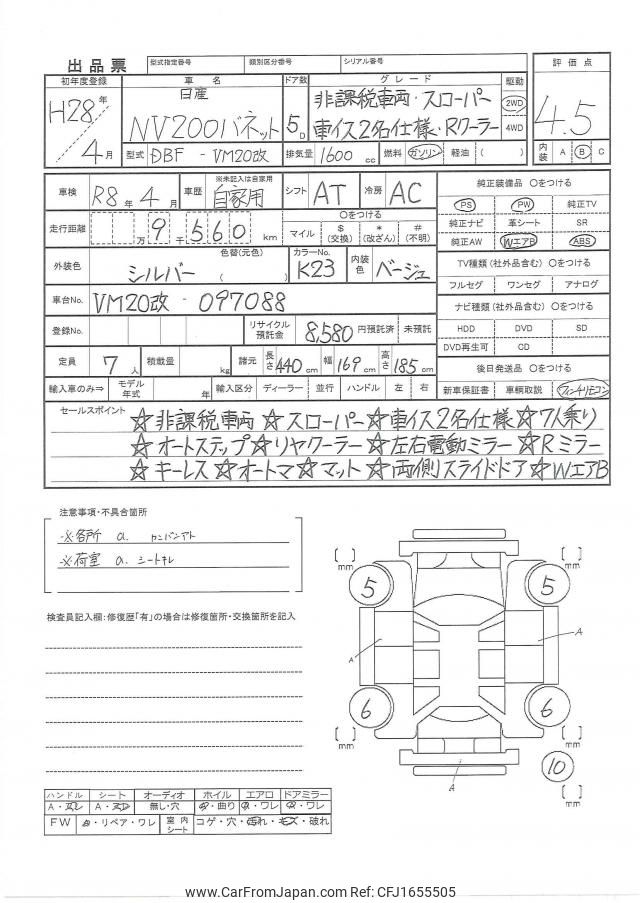 出品票 型式指定番号 類別区分番号 シリアル番号
初年度登録 車名 ドア数 グレード 駆動 評価点
H28年/4月 日産 NV200バネット 5D 非課税車両・スローパー 2WD 4.5
車イス2名仕様・Rクーラー 4WD
型式 DBF - VM20改 排気量 1600cc 燃料 ガソリン・軽油( ) 内装 A B C
車検 R8年4月 車歴 ※未記入は自家用 自家用 シフト AT 冷房 AC 純正装備品 〇をつける
PS PW 純正TV
走行距離 万 9千560km 〇をつける
マイル $(交換) *(改ざん) #(不明)
純正ナビ 革シート SR
純正AW WエアB ABS
外装色 シルバー 色替(元色) ( ) カラーNo. K23 内装色 ベージュ
TV種類(社外品含む) 〇をつける
フルセグ ワンセグ アナログ
車台No. VM20改 - 097088
ナビ種類(社外品含む) 〇をつける
登録No. リサイクル預託金 8,580円預託済 未預託
HDD DVD SD
DVD再生可 CD
定員 7人 積載量 kg 諸元 長さ440cm 幅169cm 高さ185cm
後日発送品 〇をつける
輸入車のみ⇒ モデル年式 年 輸入区分 ディーラー 並行 ハンドル 左 右
新車保証書 車輌取説
セールスポイント ☆非課税車両☆スローパー☆車イス2名仕様☆7人乗り
☆オートステップ☆リヤクーラー☆左右電動ミラー☆Rミラー
☆キーレス☆オートマ☆マット☆両側スライドドア☆WエアB
注意事項・不具合箇所
※各所 a.
※荷室 a. シートキレ
検査員記入欄:修復歴「有」の場合は修復箇所・交換箇所を記入
[ ] mm [ ] mm
5 5
A A
6 6
[ ] mm [ ] mm
10
A
[ ] mm
ハンドル シート オーディオ ホイル エアロ ドアミラー
A・スレ A・スレ 無し・穴 ・曲り ・ワレ ・ワレ
FW ・リペア・ワレ 室内シート コゲ・穴・汚れ・キズ・破れ
www.CarFromJapan.com Ref: CFJ1655505